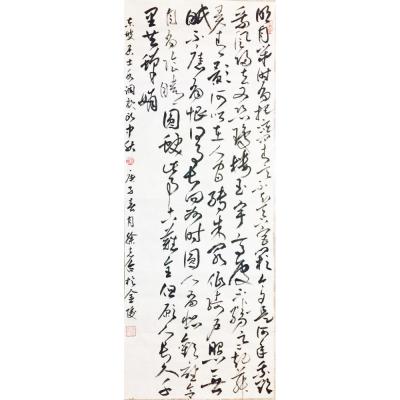 明月幾時有把酒問青天不知天上宮闕今夕是何年我欲
乘風歸去又恐瓊樓玉宇高處不勝寒起舞
弄清影何似在人間轉朱閣低綺戶照無
眠不應有恨何事長向別時圓人有悲歡離合
月有陰晴圓缺此事古難全但願人長久千
里共嬋娟
東坡居士水調歌頭中秋 庚子春月徐於金陵